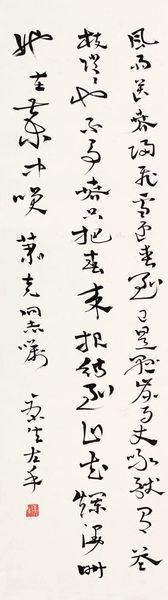 風雨送春歸飛雪迎春到已是懸崖百丈冰猶有花
枝俏〻也不爭春只把春來報待到山花爛漫時
她在叢中笑 蕭克同志囑 左手